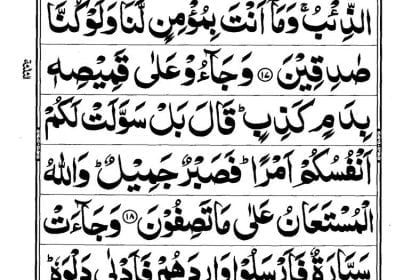 الذِّئْبُ ۚ وَمَآ اَنْتَ بِمُؤْمِنٍ لَّنَا وَلَوْ كُنَّا
صٰدِقِيْنَ ﴿۱۷﴾ وَجَآءُوْ عَلٰى قَمِيْصِهٖ
بِدَمٍ كَذِبٍ ؕ قَالَ بَلْ سَوَّلَتْ لَكُمْ
اَنْفُسُكُمْ اَمْرًا ؕ فَصَبْرٌ جَمِيْلٌ ؕ وَاللّٰهُ
الْمُسْتَعَانُ عَلٰى مَا تَصِفُوْنَ ﴿۱۸﴾ وَجَآءَتْ
سَيَّارَةٌ فَاَرْسَلُوْا وَارِدَهُمْ فَاَدْلٰى دَلْوَهٗ ؕ